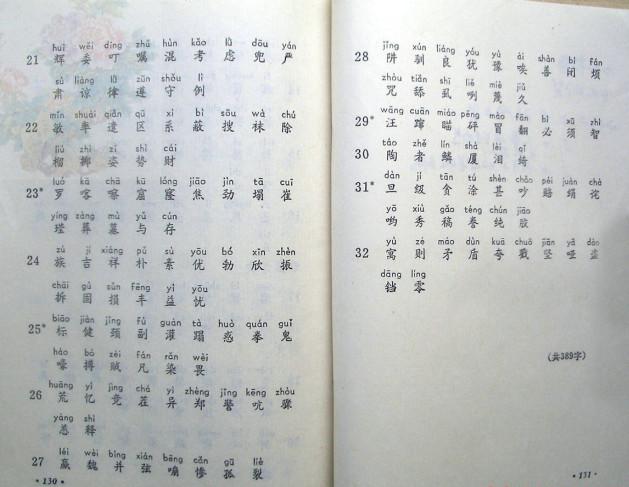 huī wěi dīng zhǔ hùn kǎo lǜ dōu yán
21 辉 委 叮 嘱 混 考 虑 兜 严
sù liàng lǜ zūn shǒu lì
肃 谅 律 遵 守 例
mǐn shuài qiǎn qū xì bì sōu wà chú
22 敏 率 遣 区 系 蔽 搜 袜 除
liú zhì zī shì cái
榴 掷 姿 势 财
luó kā chā kū lóng jiāo jìn tā cuī
23* 罗 喀 嚓 窟 窿 焦 劲 塌 崔
yíng zàng mù yǔ cún
莹 葬 墓 与 存
zú jí xiáng pǔ sù yōu bó xīn zhèn
24 族 吉 祥 朴 素 优 勃 欣 振
chāi gù sǔn fēng yì yōu
拆 固 损 丰 益 忧
biāo jiàn jǐng fù guàn tà huò quán guǐ
25* 标 健 颈 副 灌 蹋 惑 拳 鬼
háo bó zéi fán rǎn wèi
嚎 搏 贼 凡 染 畏
huāng yì jìng chá yì zhèng jǐng kēng zhòu
26 荒 忆 竞 茬 异 郑 警 吭 骤
yàng shì
恙 释
léi wèi bìng xián bēng cǎn gū liè
27 赢 魏 并 弦 嘣 惨 孤 裂
·130·
jǐng xùn liáng yóu yù ài shàn bì fán
28 阱 驯 良 犹 豫 唉 善 闭 烦
zhòu tiǎn shī liě miè jiǔ
咒 舔 虱 咧 蔑 久
wāng cuān miáo pēng mào fān bì xū zhì
29* 汪 蹿 瞄 砰 冒 翻 必 须 智
táo zhě lín shà lèi qǐ
30 陶 者 鳞 厦 泪 绮
dàn jí tān tú shèn chǎo péi juàn chà
31* 旦 级 贪 涂 甚 吵 赔 绢 诧
yō xiù gǎo téng chún jiāo
哟 秀 稿 誊 纯 胶
yù zé máo dùn kuā chuō jiān yǎ dào
32 寓 则 矛 盾 夸 戳 坚 哑 盗
dāng líng
铛 零
(共389字)
·131·